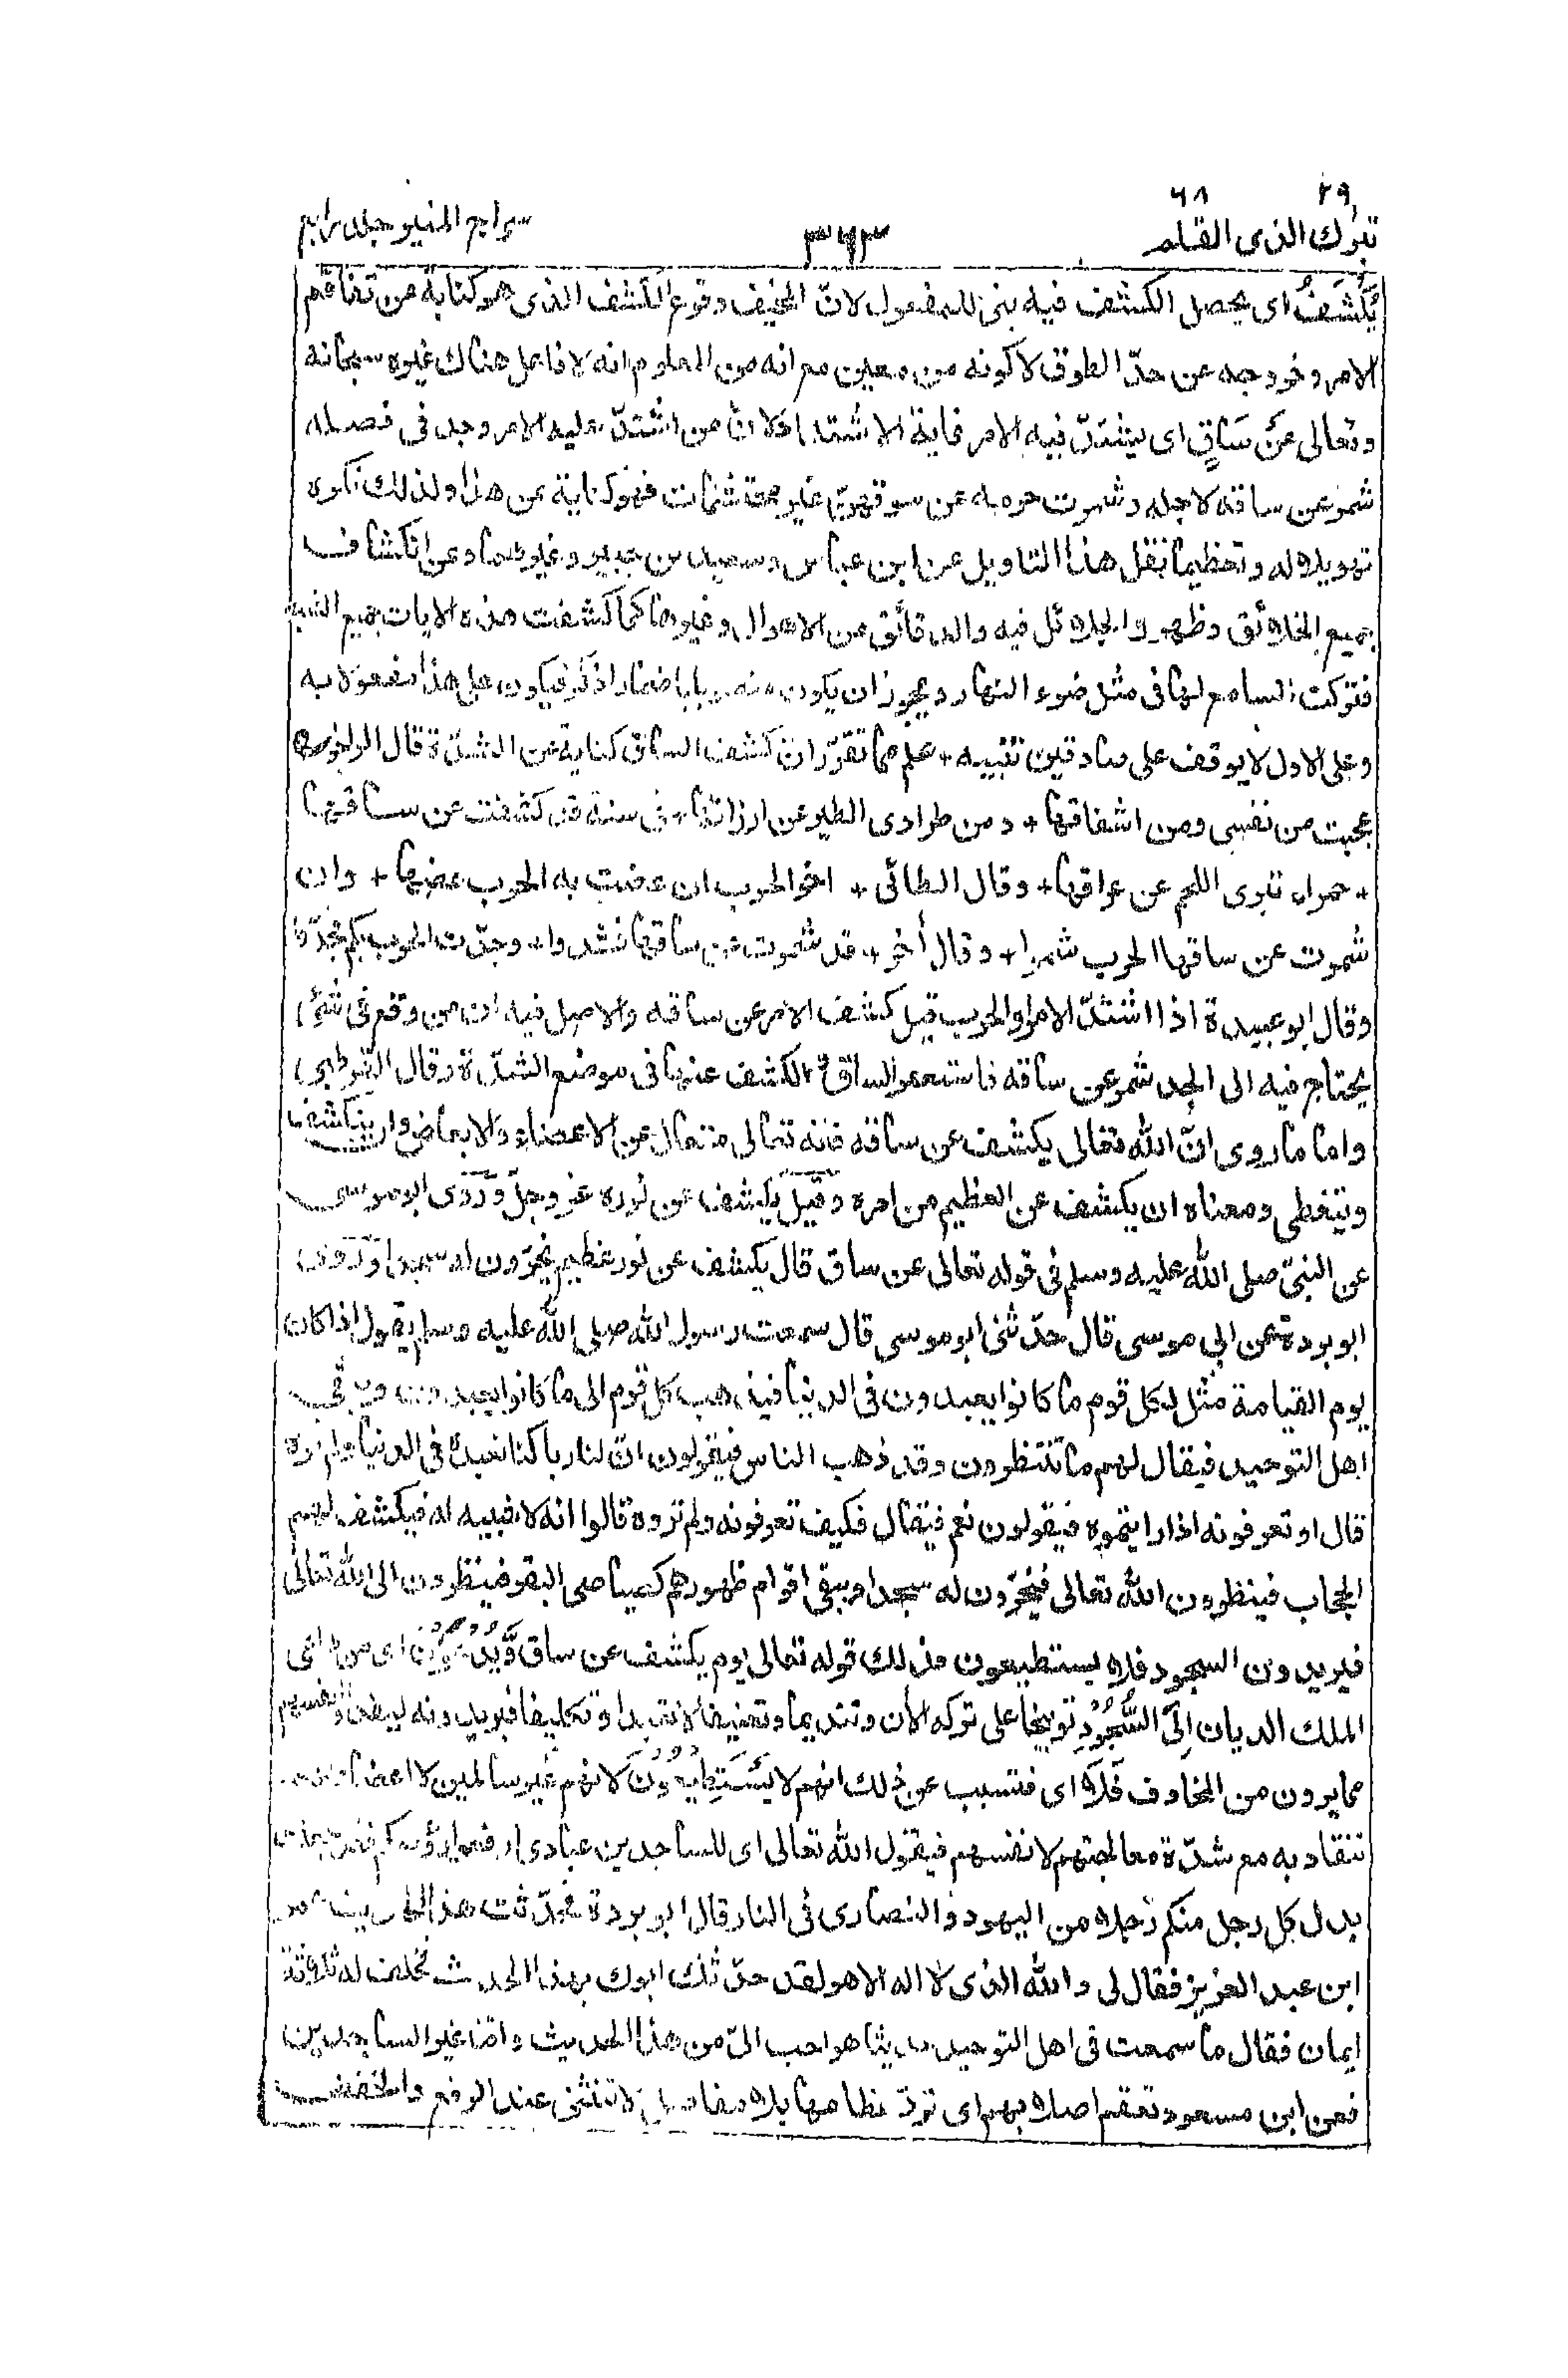 ۲۹ ۶۸
تبٰرك الذى القلم ۳۶۳ سراج المنير جلد رابع
يُكْشَفُ اى يحصل الكشف فيه بنى للمفعول لانّ المخيف وقوع الكشف الذى هو كناية عن تفاقم
الامر وخروجه عن حدّ الطوق لا كونه من معين مع انه من المعلوم انه لا فاعل هناك غيره سبحانه
وتعالى عَنْ سَاقٍ اى يشتدّ فيه الامر غاية الاشتداد لانّ من اشتدّ عليه الامر وجد فى فصله
شمر عن ساقه لاجله وشمرت حرمه عن سوقهنّ غير محتشمات فهو كناية عن هذا ولذلك نكره
تهويلا له وتعظيما نقل هذا التاويل عن ابن عباس وسعيد بن جبير وغيرهما وعن انكشاف
جميع الخلائق وظهور الجلائل فيه والدقائق من الاهوال وغيرها كما كشفت هذه الايات جميع الشبه
فتركت السامع لها فى مثل ضوء النهار ويجوز ان يكون منصوبا باضمار اذكر فيكون على هذا مفعولا به
وعلى الاول لا يوقف على صادقين تنبيه + علم مما تقرّر انّ كشف الساق كناية عن الشدّة قال الراجز
عجبت من نفسى ومن اشفاقها + ومن طرادى الطير عن ارزاقها + فى سنة قد كشفت عن ساقها
+ حمراء تبرى اللحم عن عراقها + وقال الطائى + اخو الحرب ان عضت به الحرب عضها + وان
شمرت عن ساقها الحرب شمرا + وقال أخر + قد شمرت عن ساقها فشدوا + وجدّت الحرب بكم فجدّوا
وقال ابو عبيدة اذا اشتدّ الامر او الحرب قيل كشف الامر عن ساقه والاصل فيه ان من وقع فى شئ
يحتاج فيه الى الجد شمر عن ساقه فاستعير الساق والكشف عنها فى موضع الشدّة وقال القرطبى
واما ما روى انّ الله تعالى يكشف عن ساقه فانه تعالى متعال عن الاعضاء والابعاض وان ينكشف
ويتغطى ومعناه ان يكشف عن العظيم من امره وقيل يكشف عن نوره عز وجلّ وروى ابو موسى
عن النبىّ صلى الله عليه وسلم فى قوله تعالى عن ساق قال يكشف عن نور عظيم يخرّون له سجدا وروى
ابو بردة عن ابى موسى قال حدّثنى ابو موسى قال سمعت رسول الله صلى الله عليه وسلم يقول اذا كان
يوم القيامة مثل لكل قوم ما كانوا يعبدون فى الدنيا فيذهب كل قوم الى ما كانوا يعبدون ويبقى
اهل التوحيد فيقال لهم ما تنتظرون وقد ذهب الناس فيقولون انّ لنا ربا كنا نعبده فى الدنيا ولم نره
قال او تعرفونه اذا رايتموه فيقولون نعم فيقال فكيف تعرفونه ولم تروه قالوا انه لا شبيه له فيكشف لهم
الحجاب فينظرون الله تعالى فيخرّون له سجدا ويبقى اقوام ظهورهم كصياصى البقر فينظرون الى الله تعالى
فيريدون السجود فلا يستطيعون فذلك قوله تعالى يوم يكشف عن ساق وَّيُدْعَوْنَ اى من داعى
الملك الديان اِلَى السُّجُوْدِ توبيخا على تركه الأن وتنديما وتعنيفا لا تعبدا وتكليفا فيريدونه ليفدوا انفسهم
مما يرون من المخاوف فَلَا اى فتسبب عن ذلك انهم لا يَسْتَطِيْعُوْنَ لانهم غير سالمين لا اعضاء
تنقاد به مع شدّة معالجتهم لانفسهم فيقول الله تعالى اى للساجدين عبادى ارفعوا رؤسكم فقد جعلت
بدل كل رجل منكم رجلا من اليهود والنصارى فى النار قال ابو بردة فحدّثت هذا الحديث عمر
ابن عبد العزيز فقال لى والله الذى لا اله الا هو لقد حدّثك ابوك بهذا الحديث فحلفت له ثلاثة
ايمان فقال ما سمعت فى اهل التوحيد حديثا هو احب الىّ من هذا الحديث وامّا غير الساجدين
فعن ابن مسعود تعقم اصلابهم اى تردّ عظامها بلا مفاصل لا تنثنى عند الرفع والخفض